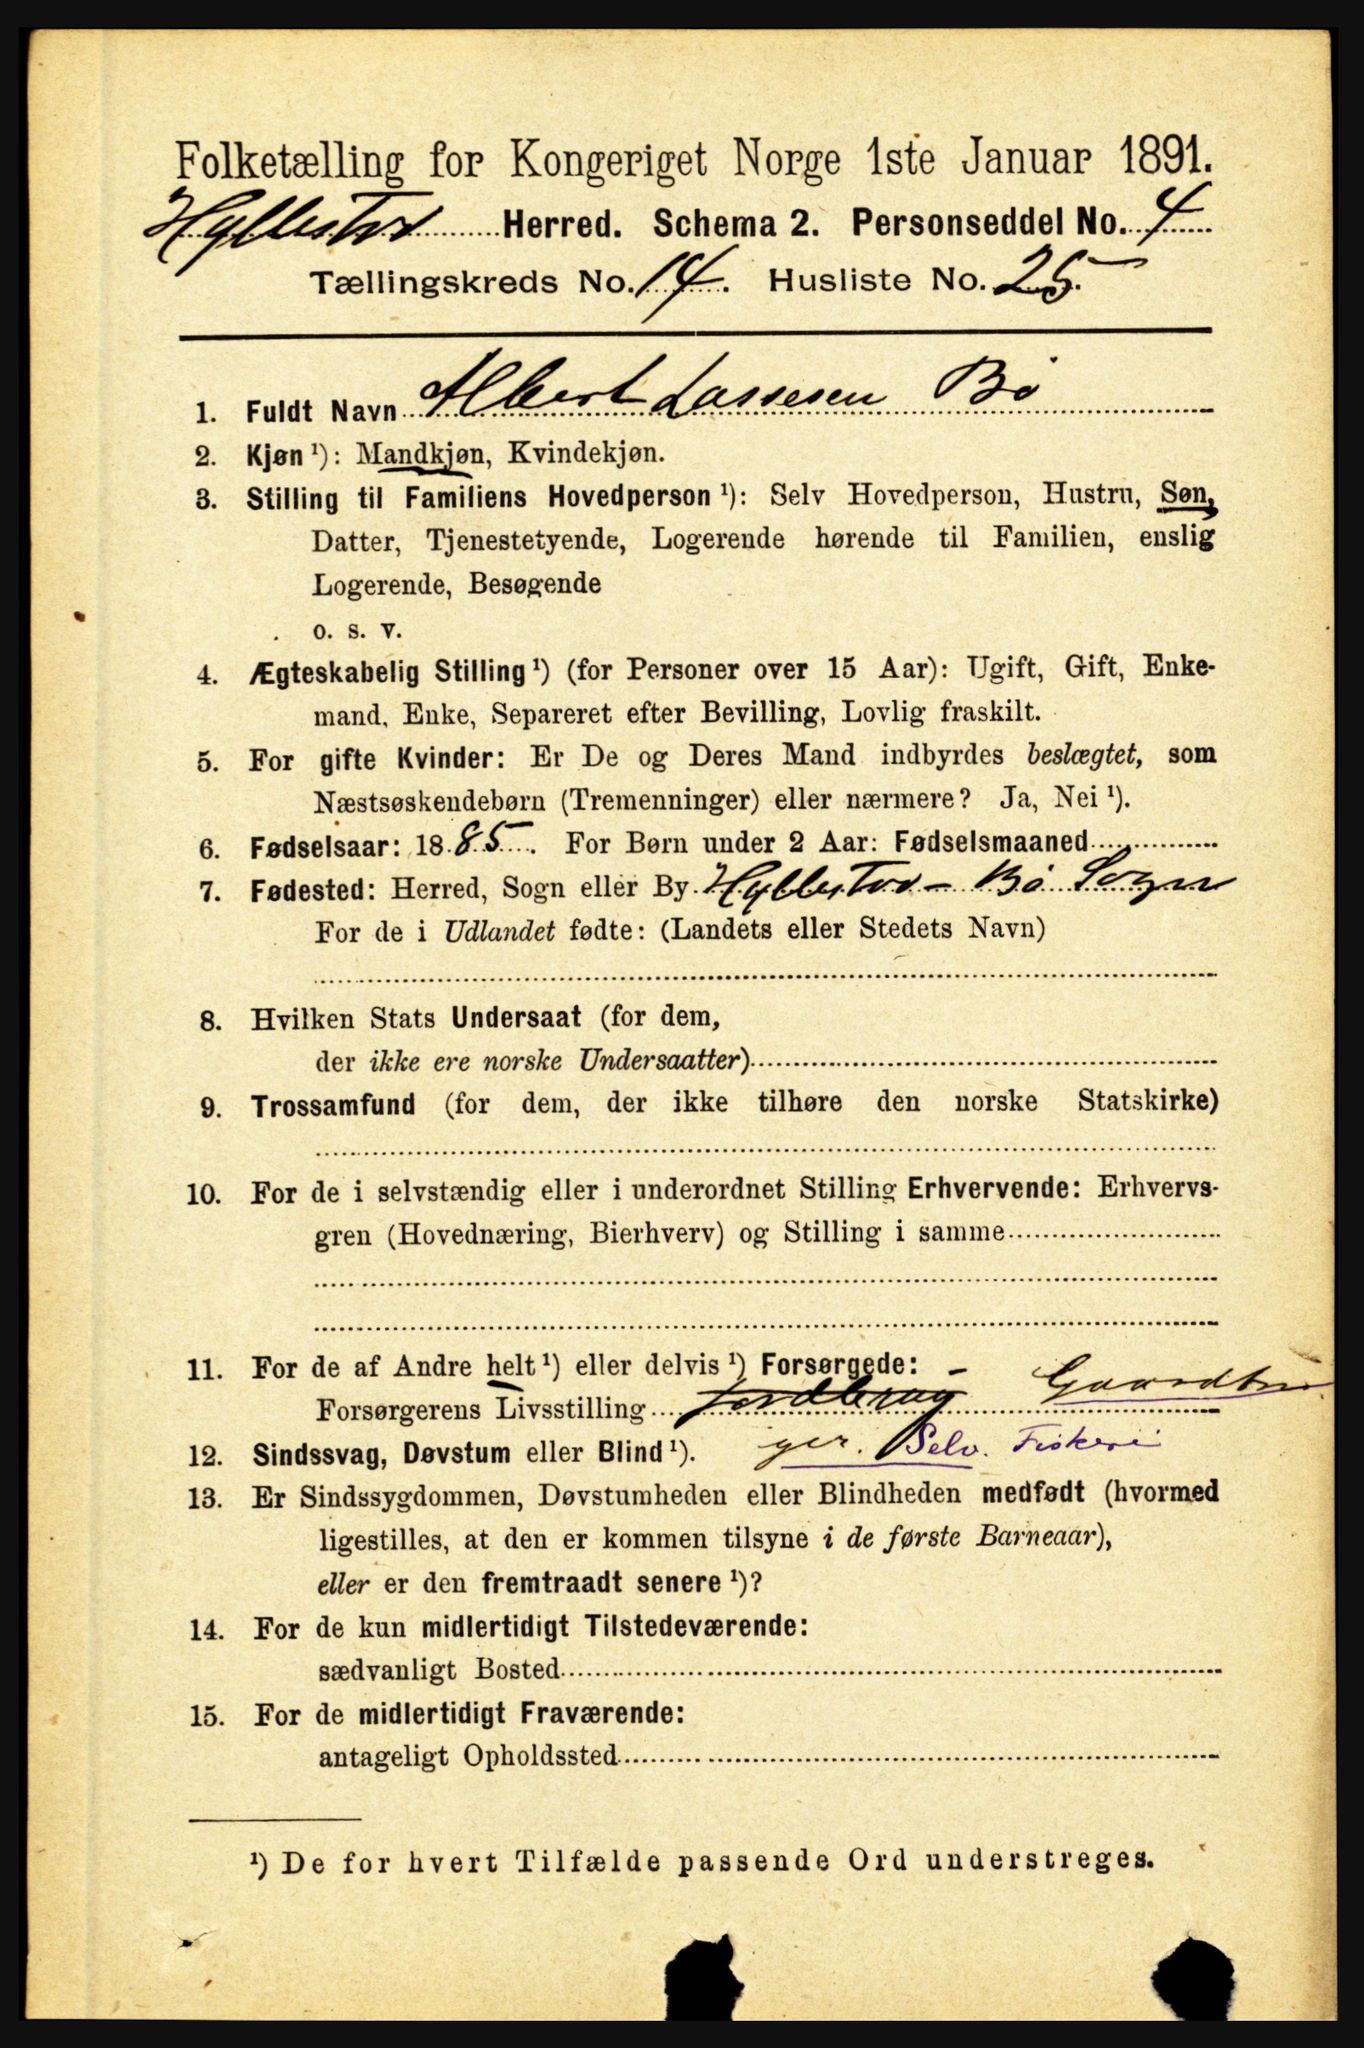 Folketælling for Kongeriget Norge 1ste Januar 1891.
Hyllestad Herred. Schema 2. Personseddel No. 4
Tællingskreds No. 14. Husliste No. 25.
1. Fuldt Navn Albert Lassesen Bø
2. Kjøn ¹): Mandkjøn, Kvindekjøn.
3. Stilling til Familiens Hovedperson ¹): Selv Hovedperson, Hustru, Søn,
Datter, Tjenestetyende, Logerende hørende til Familien, enslig
Logerende, Besøgende
o. s. v.
4. Ægteskabelig Stilling ¹) (for Personer over 15 Aar): Ugift, Gift, Enke-
mand, Enke, Separeret efter Bevilling, Lovlig fraskilt.
5. For gifte Kvinder: Er De og Deres Mand indbyrdes beslægtet, som
Næstsøskendebørn (Tremenninger) eller nærmere? Ja, Nei ¹).
6. Fødselsaar: 1885. For Børn under 2 Aar: Fødselsmaaned
7. Fødested: Herred, Sogn eller By Hyllestad – Bø Sogn
For de i Udlandet fødte: (Landets eller Stedets Navn)
8. Hvilken Stats Undersaat (for dem,
der ikke ere norske Undersaatter)
9. Trossamfund (for dem, der ikke tilhøre den norske Statskirke)
10. For de i selvstændig eller i underordnet Stilling Erhvervende: Erhvervs-
gren (Hovednæring, Bierhverv) og Stilling i samme
11. For de af Andre helt ¹) eller delvis ¹) Forsørgede:
Forsørgerens Livsstilling Jordbrug – Gaardbru
ger. Selv. Fiskeri
12. Sindssvag, Døvstum eller Blind ¹).
13. Er Sindssygdommen, Døvstumheden eller Blindheden medfødt (hvormed
ligestilles, at den er kommen tilsyne i de første Barneaar),
eller er den fremtraadt senere ¹)?
14. For de kun midlertidigt Tilstedeværende:
sædvanligt Bosted
15. For de midlertidigt Fraværende:
antageligt Opholdssted
¹) De for hvert Tilfælde passende Ord understreges.